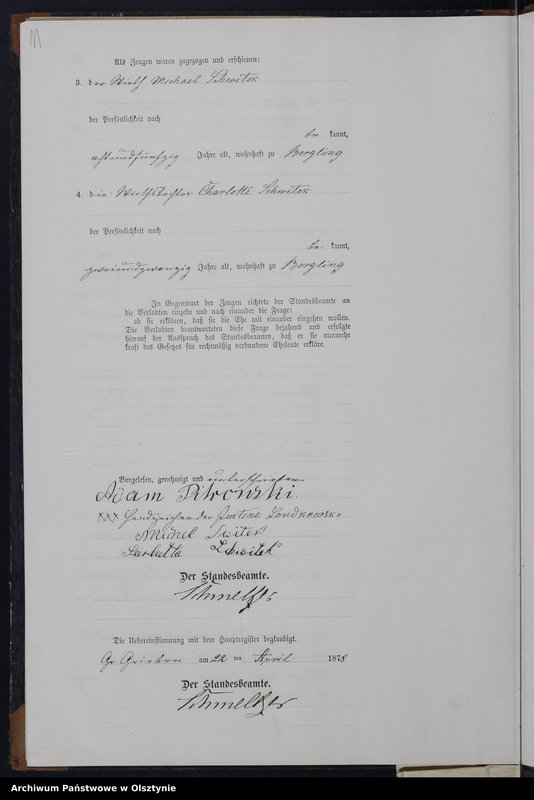 Als Zeugen waren zugezogen und erschienen:
3. der Wirth Michael Schwitek
der Persönlichkeit nach
be kannt,
achtundfünfzig Jahre alt, wohnhaft zu Bergling
4. die Wirthstochter Charlotte Schwitek
der Persönlichkeit nach
be kannt,
zweiundzwanzig Jahre alt, wohnhaft zu Bergling
In Gegenwart der Zeugen richtete der Standesbeamte an
die Verlobten einzeln und nach einander die Frage:
ob sie erklären, daß sie die Ehe mit einander eingehen wollen.
Die Verlobten beantworteten diese Frage bejahend und erfolgte
hierauf der Ausspruch des Standesbeamten, daß er sie nunmehr
kraft des Gesetzes für rechtmäßig verbundene Eheleute erkläre.
Vorgelesen, genehmigt und unterschrieben.
Adam Pitronski.
XXX Handzeichen der Justine Londkowsko
Michel Switek
Scarlatta
Der Standesbeamte.
Schmeltzer
Die Uebereinstimmung mit dem Hauptregister beglaubigt.
Gr Grieben am 22 ten April 1878
Der Standesbeamte.
Schmeltzer
Archiwum Państwowe w Olsztynie